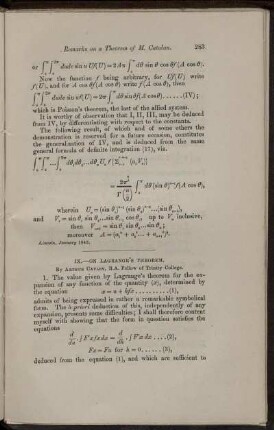 Remarks on a Theorem of M. Catalan. 283
or ∫₀^π ∫₀^2π du dv sin u Uf(U) = 2Aπ ∫₀^π dθ sin θ cos θ f(A cos θ).
Now the function f being arbitrary, for Uf(U) write
f(U), and for A cos θ f(A cos θ) write f(A cos θ), then
∫₀^π ∫₀^2π du dv sin u f(U) = 2π ∫₀^π dθ sin θ f(A cos θ).....(IV);
which is Poisson's theorem, the last of the allied system.
It is worthy of observation that I, II, III, may be deduced
from IV, by differentiating with respect to the constants.
The following result, of which and of some others the
demonstration is reserved for a future occasion, constitutes
the generalization of IV, and is deduced from the most
general formula of definite integration (17), viz.
moreover
Lincoln, January 1843.
IX.—ON LAGRANGE'S THEOREM.
By Arthur Cayley, B.A. Fellow of Trinity College.
1. The value given by Lagrange's theorem for the ex-
pansion of any function of the quantity (x), determined by
the equation x = u + hfx ..........(1),
admits of being expressed in rather a remarkable symbolical
form. The à priori deduction of this, independently of any
expansion, presents some difficulties; I shall therefore content
myself with showing that the form in question satisfies the
equations
Fx = Fu for h = 0......(3),
deduced from the equation (1), and which are sufficient to